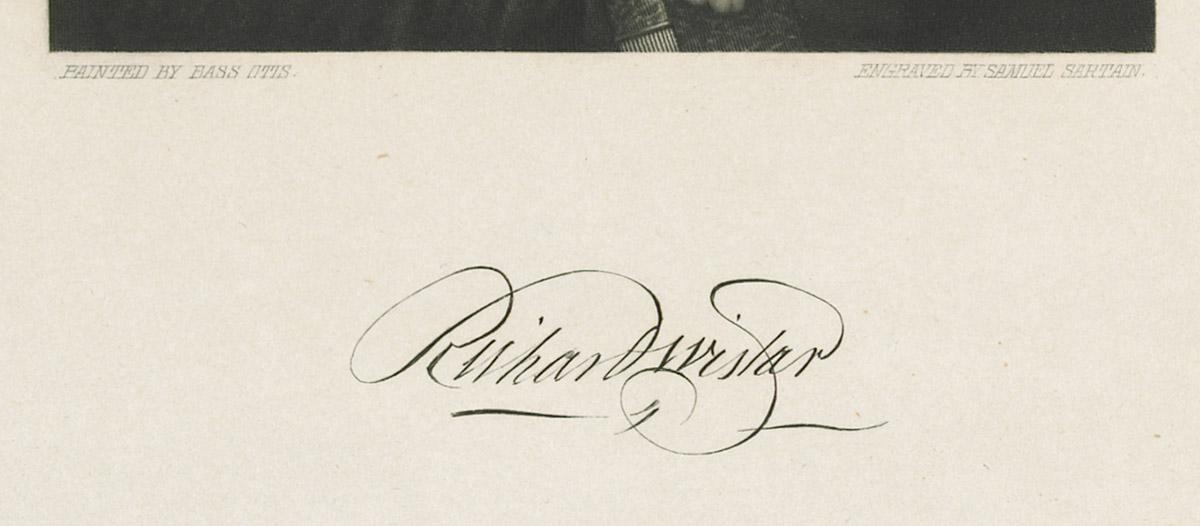 PAINTED BY BASS OTIS.
ENGRAVED BY SAMUEL SARTAIN.
Richard Wistar